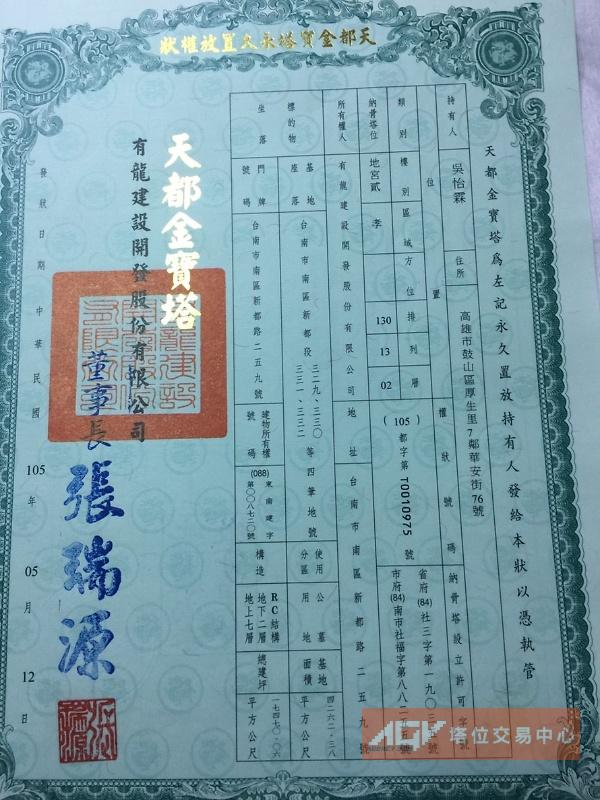 天都金寶塔永久置放權狀
天都金寶塔為左記永久置放持有人發給本狀以憑執管
持有人 吳怡霖 住所 高雄市鼓山區厚生里7鄰華安街76號
位置 權狀號碼 納骨塔設立許可字號
類別 樓別 區域 方位 排 列 層
納骨塔位 地宮貳 孝 130 13 02 (105)都字第T0010975號
省府(84)社三字第一九〇三
市府(84)南市社福字第八八二
所有權人 有龍建設開發股份有限公司 地址 台南市南區新都路二五九號
標的物坐落
基地座落 台南市南區新都段三二九、三三〇、三三一、三三二等四筆地號 使用分區 公墓用地 基地面積 四二六二.三八平方公尺
門牌號碼 台南市南區新都路二五九號 建物所有權號碼 (088)東南建字第〇〇八七二〇號 構造 RC結構 地下二層 地上七層 總建坪 一七四七〇.〇六平方公尺
天都金寶塔
有龍建設開發股份有限公司
董事長 張瑞源
發狀日期 中華民國 105 年 05 月 12 日
AGV 塔位交易中心